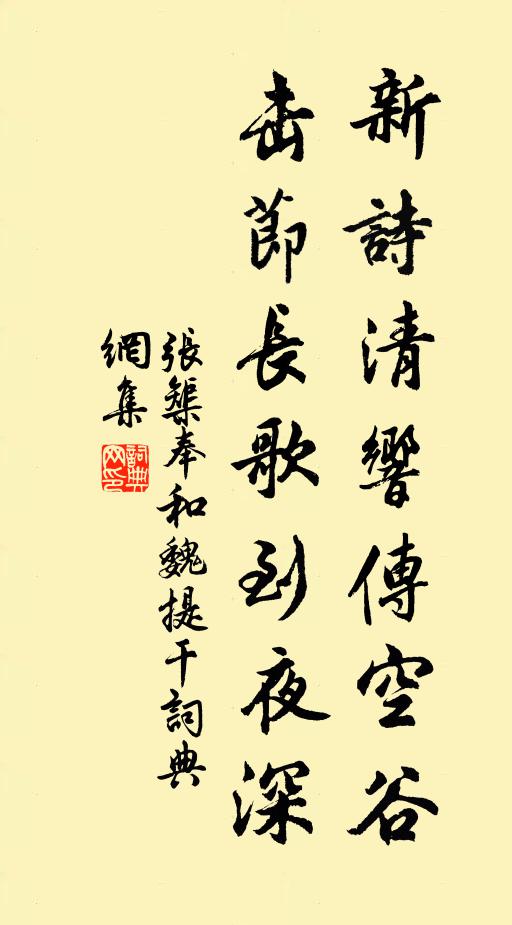 新詩清響傳空谷
击節長歌到夜深
張榘奉和魏提干詞典
網集
詞典網印